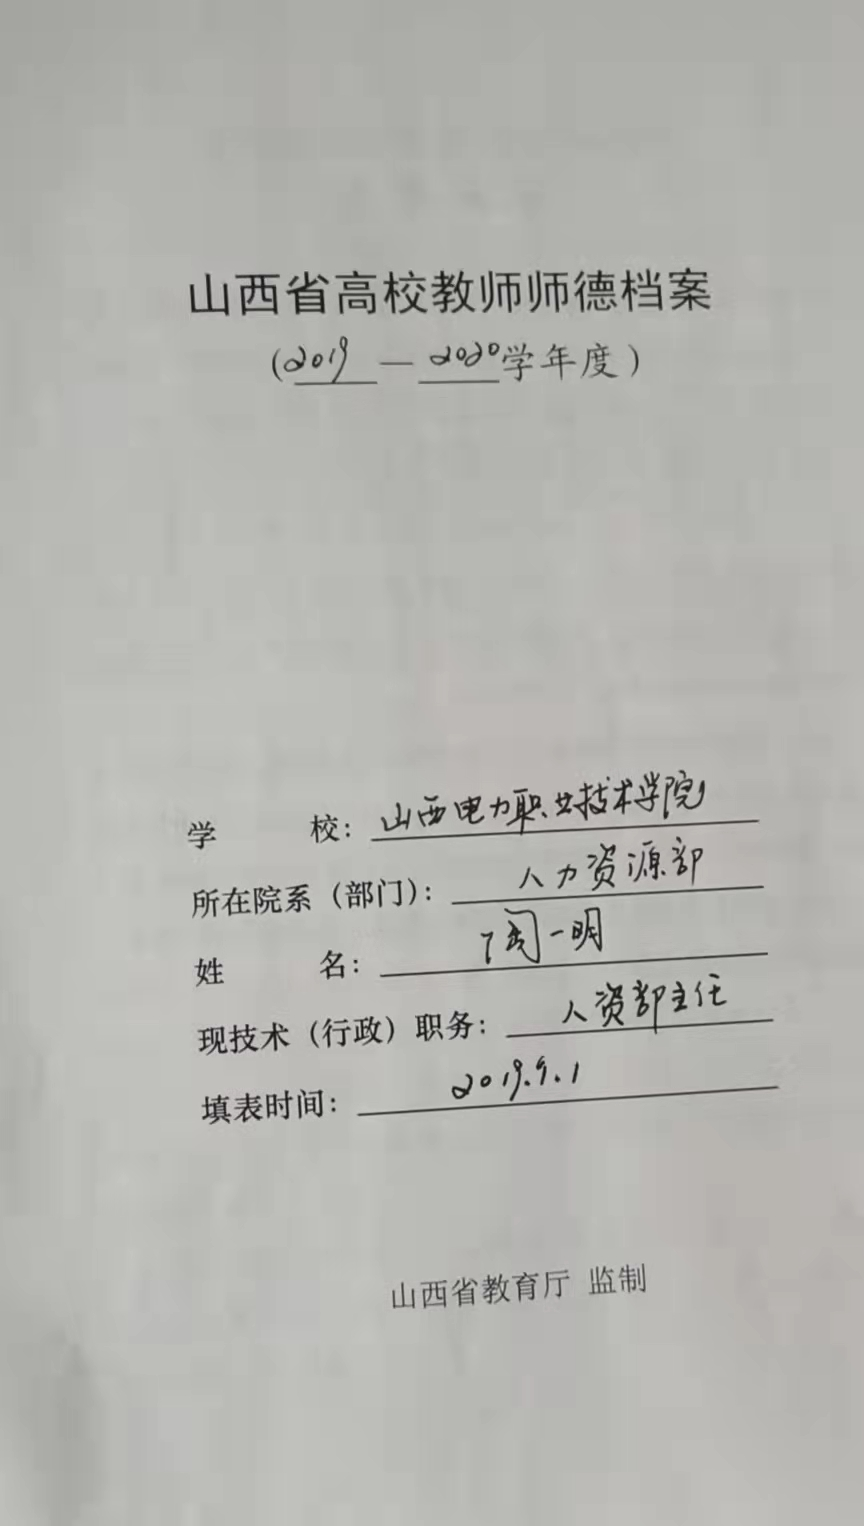 山西省高校教师师德档案
(2019 — 2020学年度)
学 校: 山西电力职业技术学院
所在院系(部门): 人力资源部
姓 名: 陶一明
现技术(行政)职务: 人资部主任
填表时间: 2019.9.1
山西省教育厅 监制